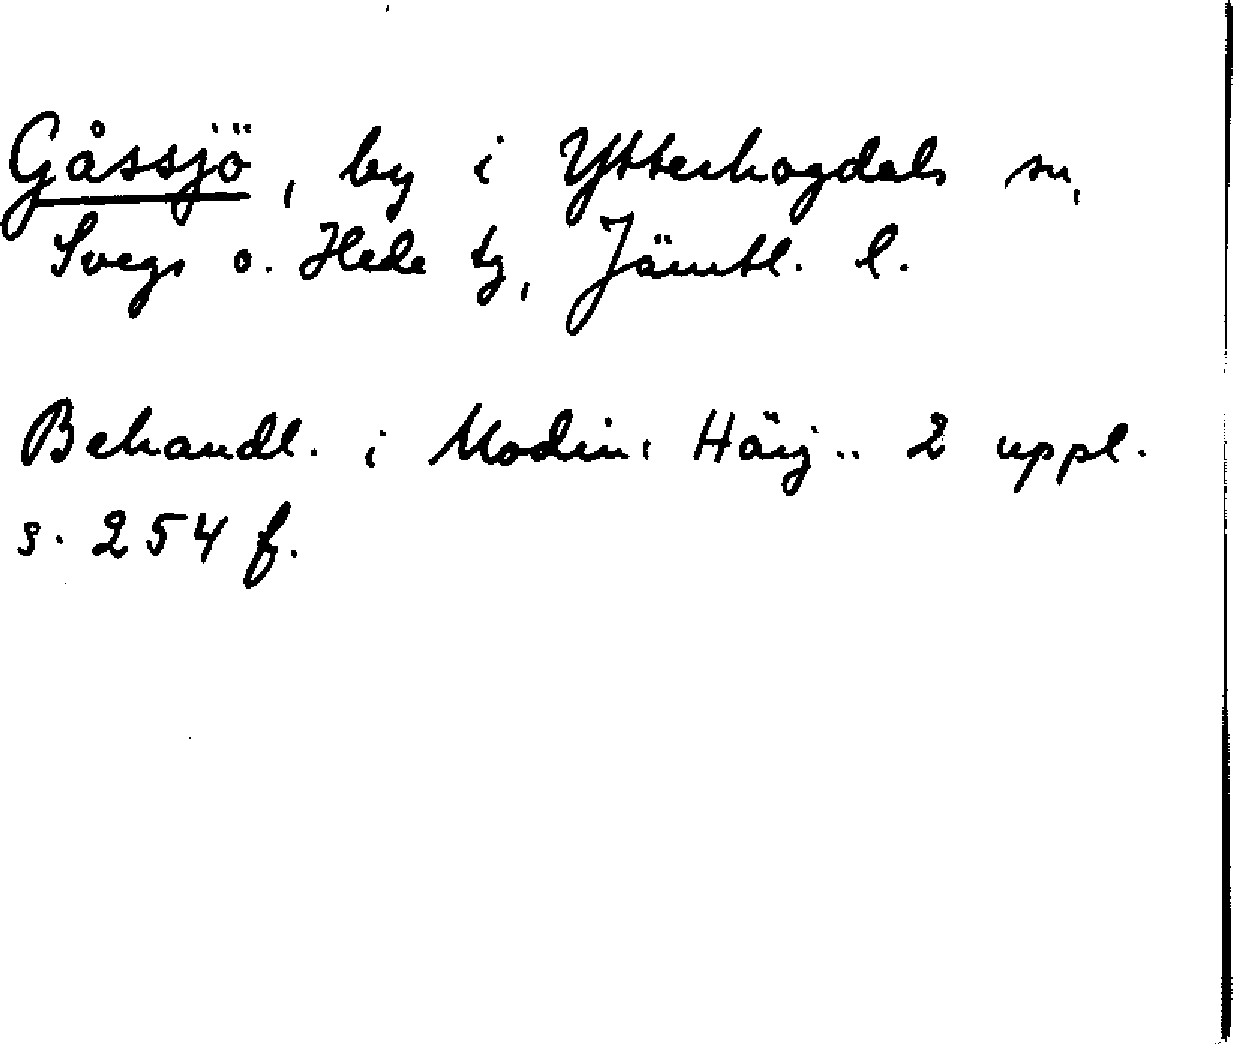 Gåssjö, by i Ytterhogdals sn,
Svegs o. Hede tg, Jämtl. l.
Behandl. i Modin, Härj.. 2 uppl.
s. 254 f.